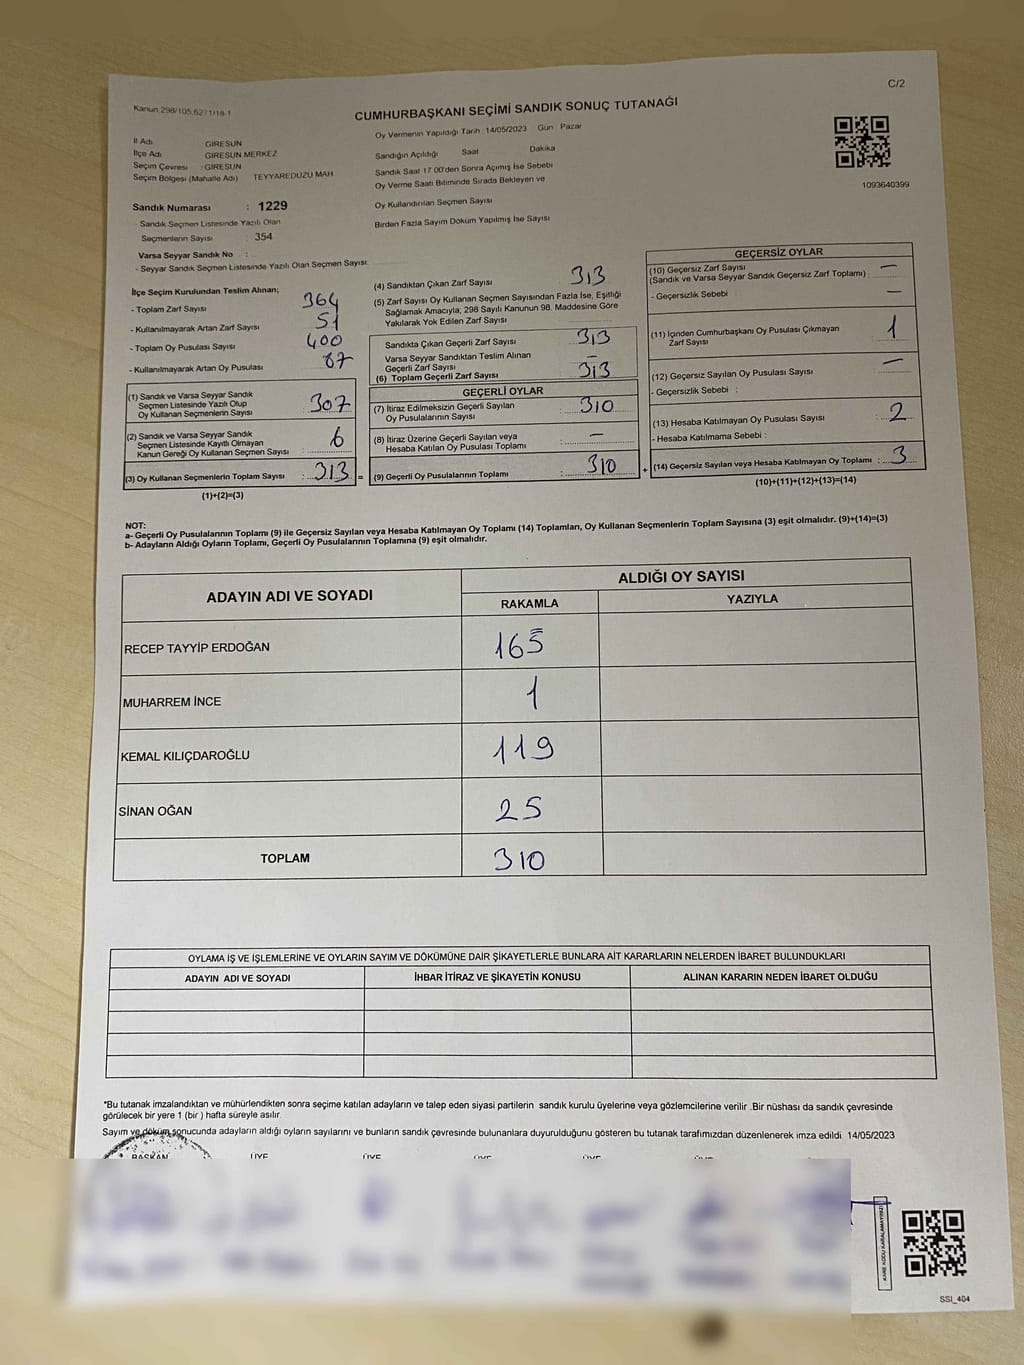 C/2
Kanun 298/105,6271/18-1
CUMHURBAŞKANI SEÇİMİ SANDIK SONUÇ TUTANAĞI
İl Adı GİRESUN
İlçe Adı GİRESUN MERKEZ
Seçim Çevresi : GİRESUN
Seçim Bölgesi (Mahalle Adı) TEYYAREDÜZÜ MAH.
Oy Vermenin Yapıldığı Tarih 14/05/2023 Gün Pazar
Sandığın Açıldığı Saat Dakika
Sandık Saat 17.00'den Sonra Açımış İse Sebebi
Oy Verme Saati Bitiminde Sırada Bekleyen ve
Oy Kullandırılan Seçmen Sayısı
Birden Fazla Sayım Döküm Yapılmış İse Sayısı
1093640399
Sandık Numarası : 1229
- Sandık Seçmen Listesinde Yazılı Olan
Seçmenlerin Sayısı : 354
Varsa Seyyar Sandık No :
- Seyyar Sandık Seçmen Listesinde Yazılı Olan Seçmen Sayısı:
İlçe Seçim Kurulundan Teslim Alınan;
- Toplam Zarf Sayısı 364
- Kullanılmayarak Artan Zarf Sayısı 51
- Toplam Oy Pusulası Sayısı 400
- Kullanılmayarak Artan Oy Pusulası 87
(1) Sandık ve Varsa Seyyar Sandık
Seçmen Listesinde Yazılı Olup
Oy Kullanan Seçmenlerin Sayısı 307
(2) Sandık ve Varsa Seyyar Sandık
Seçmen Listesinde Kayıtlı Olmayan
Kanun Gereği Oy Kullanan Seçmen Sayısı 6
(3) Oy Kullanan Seçmenlerin Toplam Sayısı : 313 =
(1)+(2)=(3)
(4) Sandıktan Çıkan Zarf Sayısı 313
(5) Zarf Sayısı Oy Kullanan Seçmen Sayısından Fazla İse, Eşitliği
Sağlamak Amacıyla, 298 Sayılı Kanunun 98. Maddesine Göre
Yakılarak Yok Edilen Zarf Sayısı
Sandıkta Çıkan Geçerli Zarf Sayısı 313
Varsa Seyyar Sandıktan Teslim Alınan
Geçerli Zarf Sayısı –
(6) Toplam Geçerli Zarf Sayısı 313
GEÇERLİ OYLAR
(7) İtiraz Edilmeksizin Geçerli Sayılan
Oy Pusulalarının Sayısı : 310
(8) İtiraz Üzerine Geçerli Sayılan veya
Hesaba Katılan Oy Pusulası Toplamı : –
(9) Geçerli Oy Pusulalarının Toplamı : 310 +
GEÇERSİZ OYLAR
(10) Geçersiz Zarf Sayısı –
(Sandık ve Varsa Seyyar Sandık Geçersiz Zarf Toplamı)
- Geçersizlik Sebebi –
(11) İçinden Cumhurbaşkanı Oy Pusulası Çıkmayan
Zarf Sayısı 1
(12) Geçersiz Sayılan Oy Pusulası Sayısı –
- Geçersizlik Sebebi :
(13) Hesaba Katılmayan Oy Pusulası Sayısı 2
- Hesaba Katılmama Sebebi :
(14) Geçersiz Sayılan veya Hesaba Katılmayan Oy Toplamı : 3
(10)+(11)+(12)+(13)=(14)
NOT:
a- Geçerli Oy Pusulalarının Toplamı (9) ile Geçersiz Sayılan veya Hesaba Katılmayan Oy Toplamı (14) Toplamları, Oy Kullanan Seçmenlerin Toplam Sayısına (3) eşit olmalıdır. (9)+(14)=(3)
b- Adayların Aldığı Oyların Toplamı, Geçerli Oy Pusulalarının Toplamına (9) eşit olmalıdır.
ADAYIN ADI VE SOYADI
ALDIĞI OY SAYISI
RAKAMLA YAZIYLA
RECEP TAYYİP ERDOĞAN 165
MUHARREM İNCE 1
KEMAL KILIÇDAROĞLU 119
SİNAN OĞAN 25
TOPLAM 310
OYLAMA İŞ VE İŞLEMLERİNE VE OYLARIN SAYIM VE DÖKÜMÜNE DAİR ŞİKAYETLERLE BUNLARA AİT KARARLARIN NELERDEN İBARET BULUNDUKLARI
ADAYIN ADI VE SOYADI İHBAR İTİRAZ VE ŞİKAYETİN KONUSU ALINAN KARARIN NEDEN İBARET OLDUĞU
*Bu tutanak imzalandıktan ve mühürlendikten sonra seçime katılan adayların ve talep eden siyasi partilerin sandık kurulu üyelerine veya gözlemcilerine verilir .Bir nüshası da sandık çevresinde
görülecek bir yere 1 (bir ) hafta süreyle asılır.
Sayım ve döküm sonucunda adayların aldığı oyların sayılarını ve bunların sandık çevresinde bulunanlara duyurulduğunu gösteren bu tutanak tarafımızdan düzenlenerek imza edildi 14/05/2023
BAŞKAN ÜYE ÜYE ÜYE ÜYE
KARE KODU KARALAMAYINIZ!
SSI_404